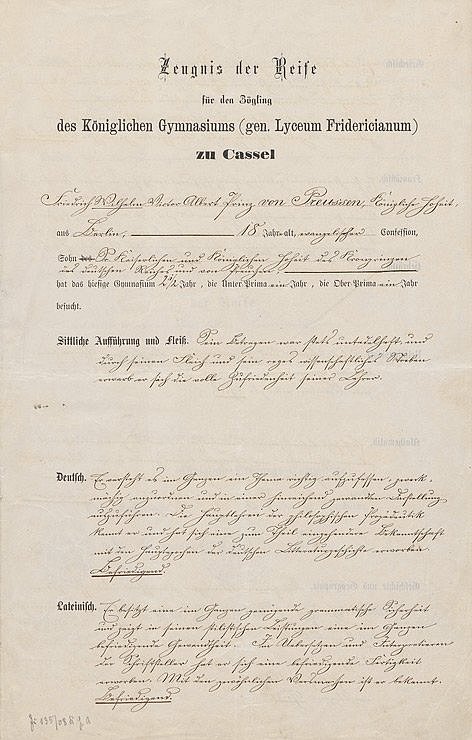 Zeugnis der Reife
für den Zögling
des Königlichen Gymnasiums (gen. Lyceum Fridericianum)
zu Cassel
Friedrich Wilhelm Victor Albert Prinz von Preussen, Königliche Hoheit,
aus Berlin, 18 Jahr alt, evangelischer Confession,
Sohn Sr. Kaiserlichen und Königlichen Hoheit des Kronprinzen
des deutschen Reiches und von Preußen
hat das hiesige Gymnasium 2½ Jahr, die Unter-Prima ein Jahr, die Ober-Prima ein Jahr
besucht.
Sittliche Aufführung und Fleiß. Sein Betragen war stets untadelhaft, und
durch seinen Fleiß und sein reges wissenschaftliches Streben
erwarb er sich die volle Zufriedenheit seiner Lehrer.
Deutsch. Er versteht es im Ganzen ein Thema richtig aufzufassen, zweck-
mäßig anzuordnen und in einer hinreichend gewandten Darstellung
auszuführen. Die Hauptlehren der philosophischen Propädeutik
kennt er und hat sich eine zum Theil eingehendere Bekanntschaft
mit den Hauptepochen der deutschen Litteraturgeschichte erworben.
Befriedigend.
Lateinisch. Er besitzt eine im Ganzen genügende grammatische Sicherheit
und zeigt in seinen stilistischen Leistungen eine im Ganzen
befriedigende Gewandtheit. Im Uebersetzen und Interpretieren
der Schriftsteller hat er sich eine befriedigende Fertigkeit
erworben. Mit den gewöhnlichen Versmaßen ist er bekannt.
Befriedigend.